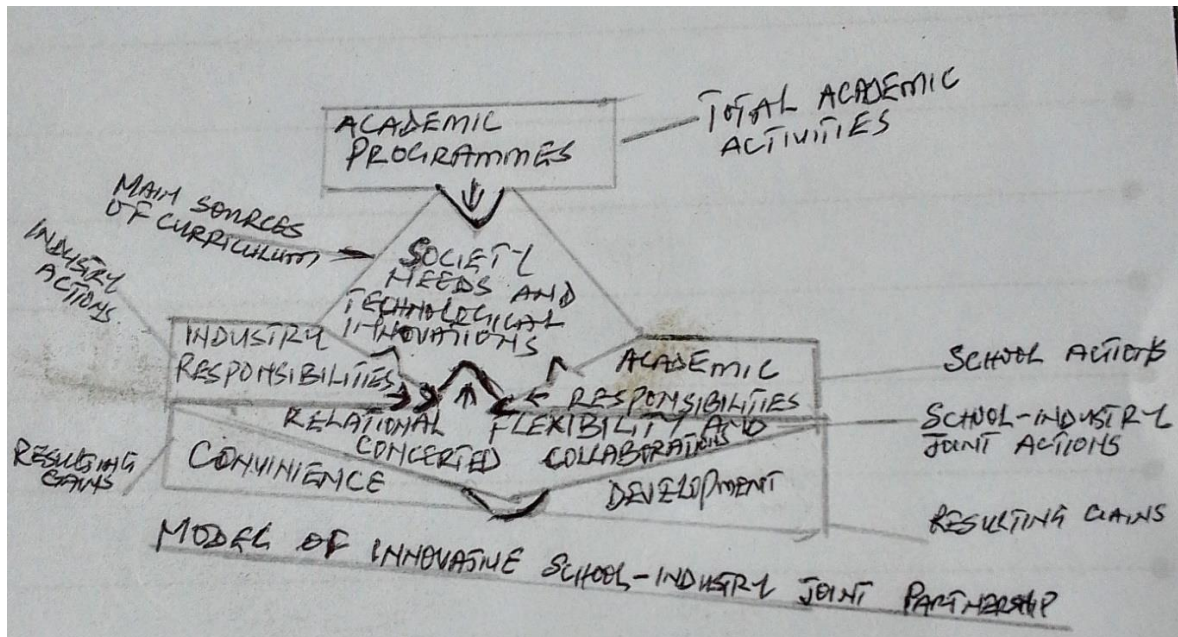 ACADEMIC
PROGRAMMES
TOTAL ACADEMIC
ACTIVITIES
MAIN SOURCES
OF CURRICULUM
SOCIETY
NEEDS AND
TECHNOLOGICAL
INNOVATIONS
INDUSTRY
ACTIONS
INDUSTRY
RESPONSIBILITIES
ACADEMIC
RESPONSIBILITIES
SCHOOL ACTIONS
RELATIONAL FLEXIBILITY AND
CONCERTED COLLABORATIONS
SCHOOL-INDUSTRY
JOINT ACTIONS
RESULTING
GAINS
CONVINIENCE
DEVELOPMENT
RESULTING GAINS
MODEL OF INNOVATIVE SCHOOL-INDUSTRY JOINT PARTNERSHIP